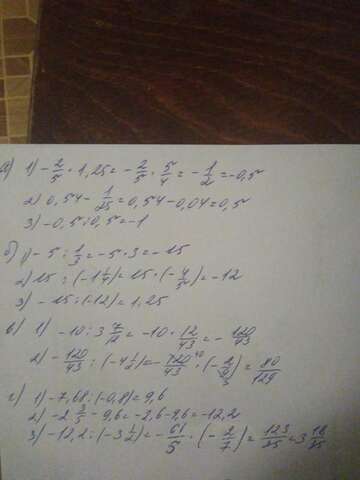 а) 1) -2/5 · 1,25 = -2/5 · 5/4 = -1/2 = -0,5
2) 0,54 - 1/25 = 0,54 - 0,04 = 0,5
3) -0,5 : 0,5 = -1
б) 1) -5 : 1/3 = -5 · 3 = -15
2) 15 : (-1 1/4) = 15 · (-4/5) = -12
3) -15 : (-12) = 1,25
в) 1) -10 : 3 7/12 = -10 · 12/43 = -120/43
2) -120/43 : (-4 1/2) = -120/43 · (-2/9) = 80/129
г) 1) -7,68 : (-0,8) = 9,6
2) -2 3/5 - 9,6 = -2,6 - 9,6 = -12,2
3) -12,2 : (-3 1/2) = -61/5 · (-2/7) = 123/35 = 3 18/35